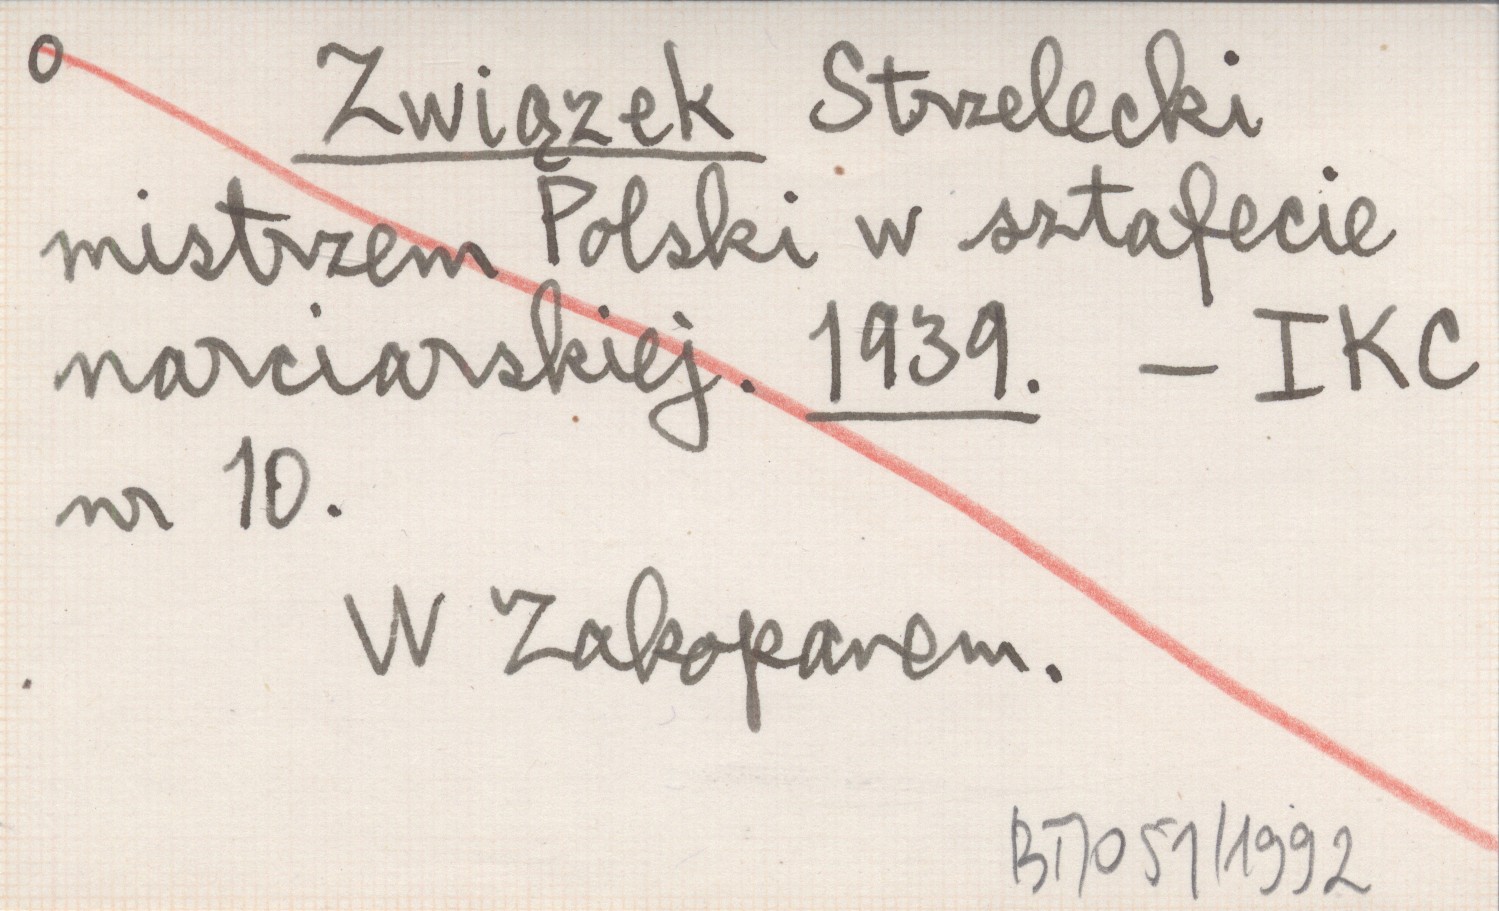 o Związek Strzelecki
mistrzem Polski w sztafecie
narciarskiej. 1939. – IKC
nr 10.
W Zakopanem.
051/1992